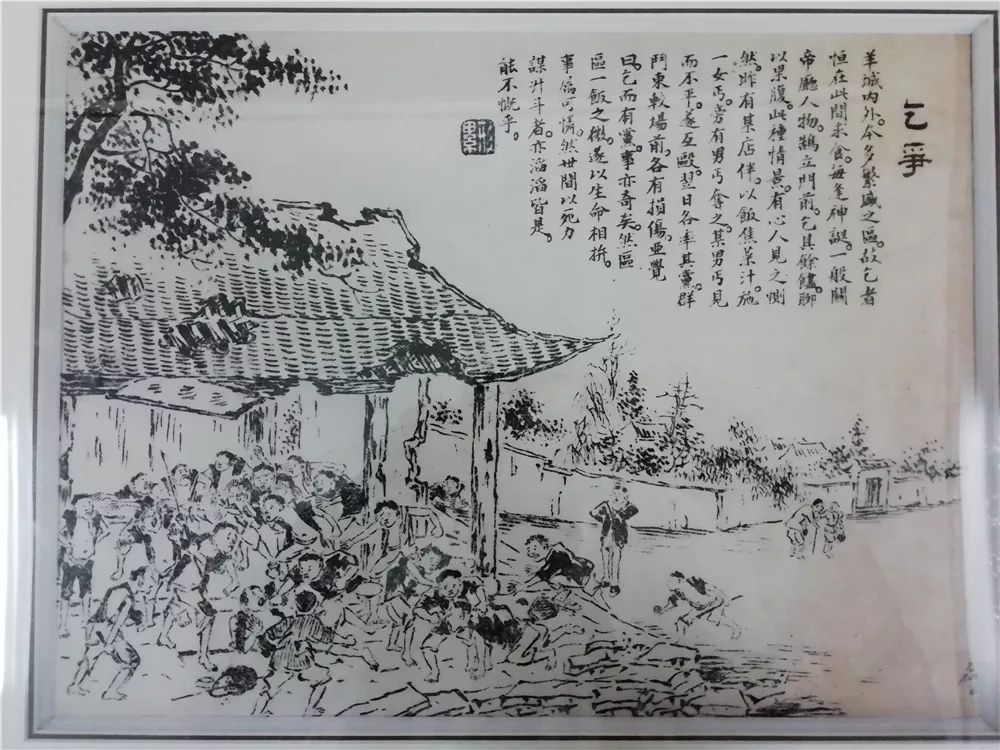 乞爭
羊城內外。亦多繁盛之區。故乞者
恒在此間求食。每逢神誕。一般關
帝廳人物。鵠立門前。乞其餘饁。聊
以果腹。此種情景。有心人見之。惻
然。昨有某店伴。以飯焦菜汁。施
一女丐。旁有男丐奪之。某男丐見
而不平。遂互毆。翌日各率其黨。群
鬥東較場前。各有損傷。亜覺
曰。乞而有黨。事亦奇矣。然區
區一飯之微。遂以生命相拚。
事僞可憐。然世間以死力
謀升斗者。亦滔滔皆是。
能不慨乎。